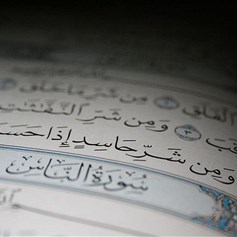 الفلق ۝١ من شر ما خلق
ومن شر النفثت
قب ۝٣
ومن شر حاسد إذا حسد
سورة الناس